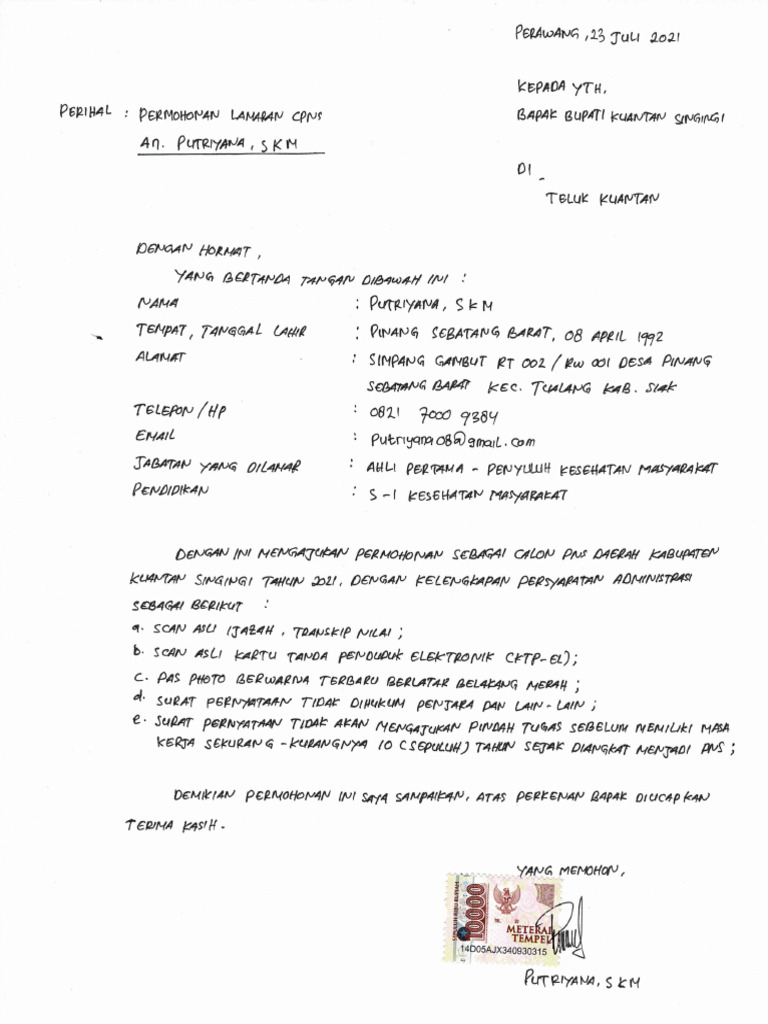 PERAWANG, 23 JULI 2021
KEPADA YTH.
PERIHAL : PERMOHONAN LAMARAN CPNS
BAPAK BUPATI KUANTAN SINGINGI
An. PUTRIYANA, SKM
DI
TELUK KUANTAN
DENGAN HORMAT,
YANG BERTANDA TANGAN DIBAWAH INI :
NAMA : PUTRIYANA, SKM
TEMPAT, TANGGAL LAHIR : PINANG SEBATANG BARAT, 08 APRIL 1992
ALAMAT : SIMPANG GAMBUT RT 002 / RW 001 DESA PINANG
SEBATANG BARAT KEC. TUALANG KAB. SIAK
TELEPON/HP : 0821 7000 9384
EMAIL : putriyana08@gmail.com
JABATAN YANG DILAMAR : AHLI PERTAMA - PENYULUH KESEHATAN MASYARAKAT
PENDIDIKAN : S-1 KESEHATAN MASYARAKAT
DENGAN INI MENGAJUKAN PERMOHONAN SEBAGAI CALON PNS DAERAH KABUPATEN
KUANTAN SINGINGI TAHUN 2021, DENGAN KELENGKAPAN PERSYARATAN ADMINISTRASI
SEBAGAI BERIKUT :
a. SCAN ASLI IJAZAH, TRANSKIP NILAI;
b. SCAN ASLI KARTU TANDA PENDUDUK ELEKTRONIK (KTP-EL);
c. PAS PHOTO BERWARNA TERBARU BERLATAR BELAKANG MERAH;
d. SURAT PERNYATAAN TIDAK DIHUKUM PENJARA DAN LAIN-LAIN;
e. SURAT PERNYATAAN TIDAK AKAN MENGAJUKAN PINDAH TUGAS SEBELUM MEMILIKI MASA
KERJA SEKURANG-KURANGNYA 10 (SEPULUH) TAHUN SEJAK DIANGKAT MENJADI PNS;
DEMIKIAN PERMOHONAN INI SAYA SAMPAIKAN, ATAS PERKENAN BAPAK DIUCAPKAN
TERIMA KASIH.
YANG MEMOHON,
10000
METERAI
TEMPEL
14D05AJX340930315
PUTRIYANA, SKM